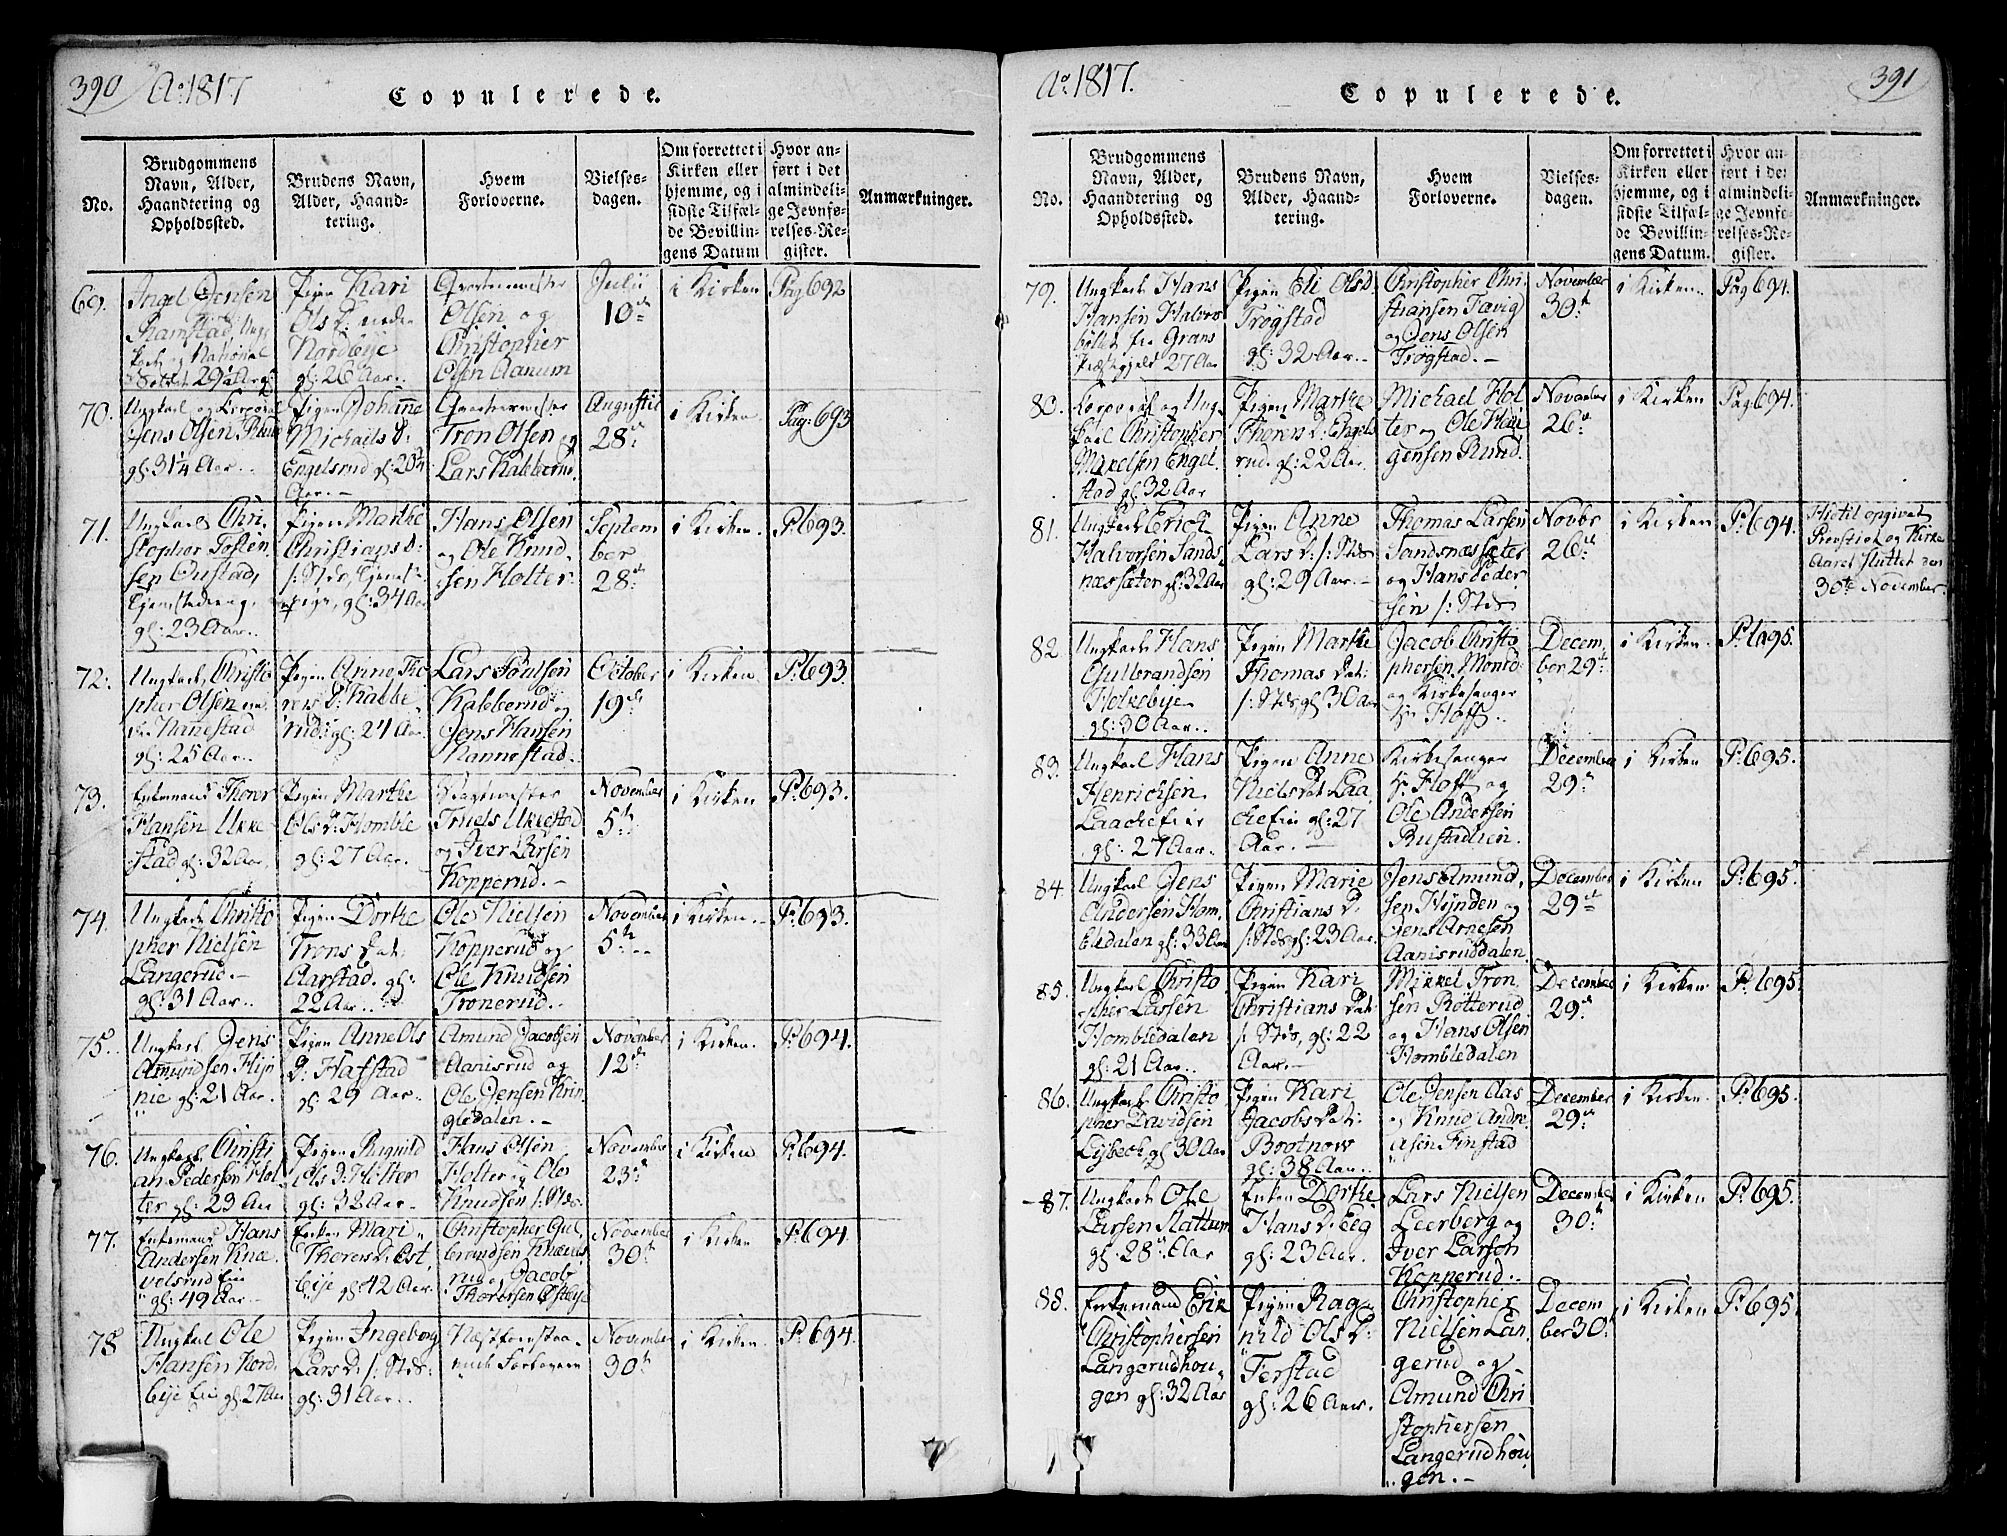 390
Ao 1817
Copulerede.
No.
Brudgommens
Navn, Alder,
Haandtering og
Opholdssted.
Brudens Navn,
Alder, Haand-
tering.
Hvem
Forloverne.
Vielses-
dagen.
Om forrettet i
Kirken eller
hjemme, og i
sidste Tilfæl-
de Bevillin-
gens Datum
Hvor an-
ført i det
almindeli-
ge Jevnfø-
relses-Re-
gister.
Anmærkninger.
69.
Ramstad, Ung-
gl: 29 Aar
Pigen Kari
Ols D: nedre
Nordbye
gl: 26 Aar.
Olsen og
Christopher
Olsen Aanum
Julii
10de
i Kirken
Pag 692
70.
Ungkarl og Corporal
Jens Olsen Ruud
gl: 31¼ Aar..
Pigen Johanne
Michails D:
Engelsrud gl: 20¾
Aar.-
Tron Olsen og
Lars Kabberud.
Augustii
28de
i Kirken
Pag: 693
71.
Ungkarl Chri-
stopher Tosten
sen Onstad,
Tjenestedreng,
gl: 23 Aar..
Pigen Marthe
Christians D:
/: Stds, Tjeneste
pige, gl: 34 Aar
Hans Olsen
og Ole Knud-
sen Holter
Septem
ber
28de
i Kirken.
P: 693.
72.
Ungkarl Christo
pher Olsen
Nannestad
gl: 25 Aar..
Pigen Anne Tho
rers D: Kabbe
rud: gl: 24 Aar.
Lars Poulsen
Kabberud og
Jens Hansen
Nannestad.
October
19de
i Kirken
P: 693.
73.
Enkemand Thorer
Hansen Ukke
stad gl: 32 Aar.
Pigen Marthe
Ols D: Homble
gl: 27 Aar.
Truels Ukkestad
og Iver Larsen
Kopperud.-
November
5te
i Kirken
P: 693.
74.
Ungkarl Christo
pher Nielsen
Langerud.-
gl: 31 Aar..
Pigen Dorthe
Trons Dat:
Aarstad. gl:
22 Aar..
Ole Nielsen
Kopperud og
Ole Knudsen
Tronerud..
November
5te
i Kirken..
P: 693.
75.
Ungkarl Jens
Amundsen Hijn
nie gl: 21 Aar.
Pigen Anne Ols
D: Hafstad
gl: 29 Aar..
Amund Jacobsen
Aanisrud og
Ole Jensen Krin
gledalen.-
November
12de
i Kirken.
P: 694.
76.
Ungkarl Christi
an Pedersen Hol
ter gl: 23 Aar
Pigen Ragnild
Ols D: Holter
gl: 32 Aar.
Hans Olsen
Holter og Ole
Knudsen /: Stds.
November
23de
i Kirken
P: 694.
77.
Enkemand Hans
Andersen Knæ
velsrud Eie
gl: 49 Aar.-
Enken Mari
Thorers D: Ost
bije gl: 42 Aar.
Christopher Gul
brandsen Knævels
rud og Jacob
Thorersen Østbije
November
30te
i Kirken
P: 694.
78
Ungkarl Ole
Hansen Nord
bije Eie gl: 27 Aar
Pigen Ingeborg
Lars D: /: Stds:
gl: 31 Aar..
Næstforestaa
ende Forlovere
November
30te
i Kirken.
P: 694.
Ao 1817.
Copulerede.
391
No.
Brudgommens
Navn, Alder,
Haandtering og
Opholdssted.
Brudens Navn,
Alder, Haand-
tering.
Hvem
Forloverne.
Vielses-
dagen.
Om forrettet i
Kirken eller
hjemme, og i
sidste Tilfæl-
de Bevillin-
gens Datum.
Hvor an-
ført i det
almindeli-
ge Jevnfø-
relses-Re-
gister.
Anmærkninger.
79.
Ungkarl Hans
Hansen Halvors
bølet fra Grans
Præstegjeld 27 Aar
Pigen Eli Olsd.
Trøgstad
gl: 32 Aar..
Christopher Chri
stiansen Tævig
og Jens Olsen
Trøgstad.-
November
30te
i Kirken.
Pag 694.
80.
Corporal og Ung-
karl Christopher
Mikelsen Engel
stad gl: 32 Aar
Pigen Marthe
Thorers D: Engels
rud. gl: 22 Aar.
Michael Hol
ter og Ole
gensen Ruud.
November
26de
i Kirken
Pag: 694.
81.
Ungkarl Erich
Halvorsen Sands
næssæter gl: 32 Aar
Pigen Anne
Lars D: /: Stds
gl: 29 Aar.-
Thomas Larsen
Sandsnæssæter
og Hans Peder
sen /: Stds
Novbr
26de
i Kirken
P: 694.
Hidtil opgivet
og Kirke
Aaret sluttet den
30te November.
82
Ungkarl Hans
Gulbrandsen
Holsebije
gl: 30 Aar..
Pigen Marthe
Thomas Dat:
/: Stds gl: 30 Aar
Jacob Christo
phersen Monrd
og Kirkesanger
Hr Hoff..
Decem-
ber 29de
i Kirken.
P: 695.
83.
Ungkarl Hans
Henrichsen
Laache Eier
gl: 27 Aar..
Pigen Anne
Niels Dat Laa
che Eie gl: 27
Aar.-
Kirkesanger
Hr Hoff og
Ole Andersen
Rustadeien.
December
29de
i Kirken
P: 695.
84
Ungkarl Jens
Andersen Hom-
bledalen gl: 33 Aar
Pigen Marie
Christians D.
/: Stds gl: 23 Aar.
Jens Amund-
sen Hijnden og
Jens Arnesen
Aanisruddalen.
December
29de
i Kirken
P: 695.
85.
Ungkarl Christo
pher Larsen
Hombledalen
gl: 21 Aar..
Pigen Kari
Christians Dat:
/: Stds, gl: 22
Aar.-
Mikkel Tron
sen Røtterud
og Hans Olsen
Hombledalen
December
29de
i Kirken
P: 695.
86.
Ungkarl Christo
pher Davidsen
Lijsbech gl: 30 Aar
Pigen Kari
Jacobs Dat:
Bootner
gl: 38 Aar..
Ole Jensen Aas
og Knud Andre
asen Finstad
December
29de
i Kirken
P: 695.
87.
Ungkarl Ole
Larsen Nattum
gl: 28 Aar
Enken Dorthe
Hans D: Eeg
gl: 23 Aar.
Lars Nielsen
Leerberg og
Iver Larsen
Kopperud.-
December
30te
i Kirken
P: 695.
88.
Enkemand Erik
Christophersen
Langerudhou
gen gl: 32 Aar
Pigen Rag-
nild Ols D:
Ferstad
gl: 26 Aar.
Christopher
Nielsen Lan-
gerud og
Amund Chri
stophersen
Langerudhou
gen.-
Decem
ber 30te
i Kirken
P: 695.